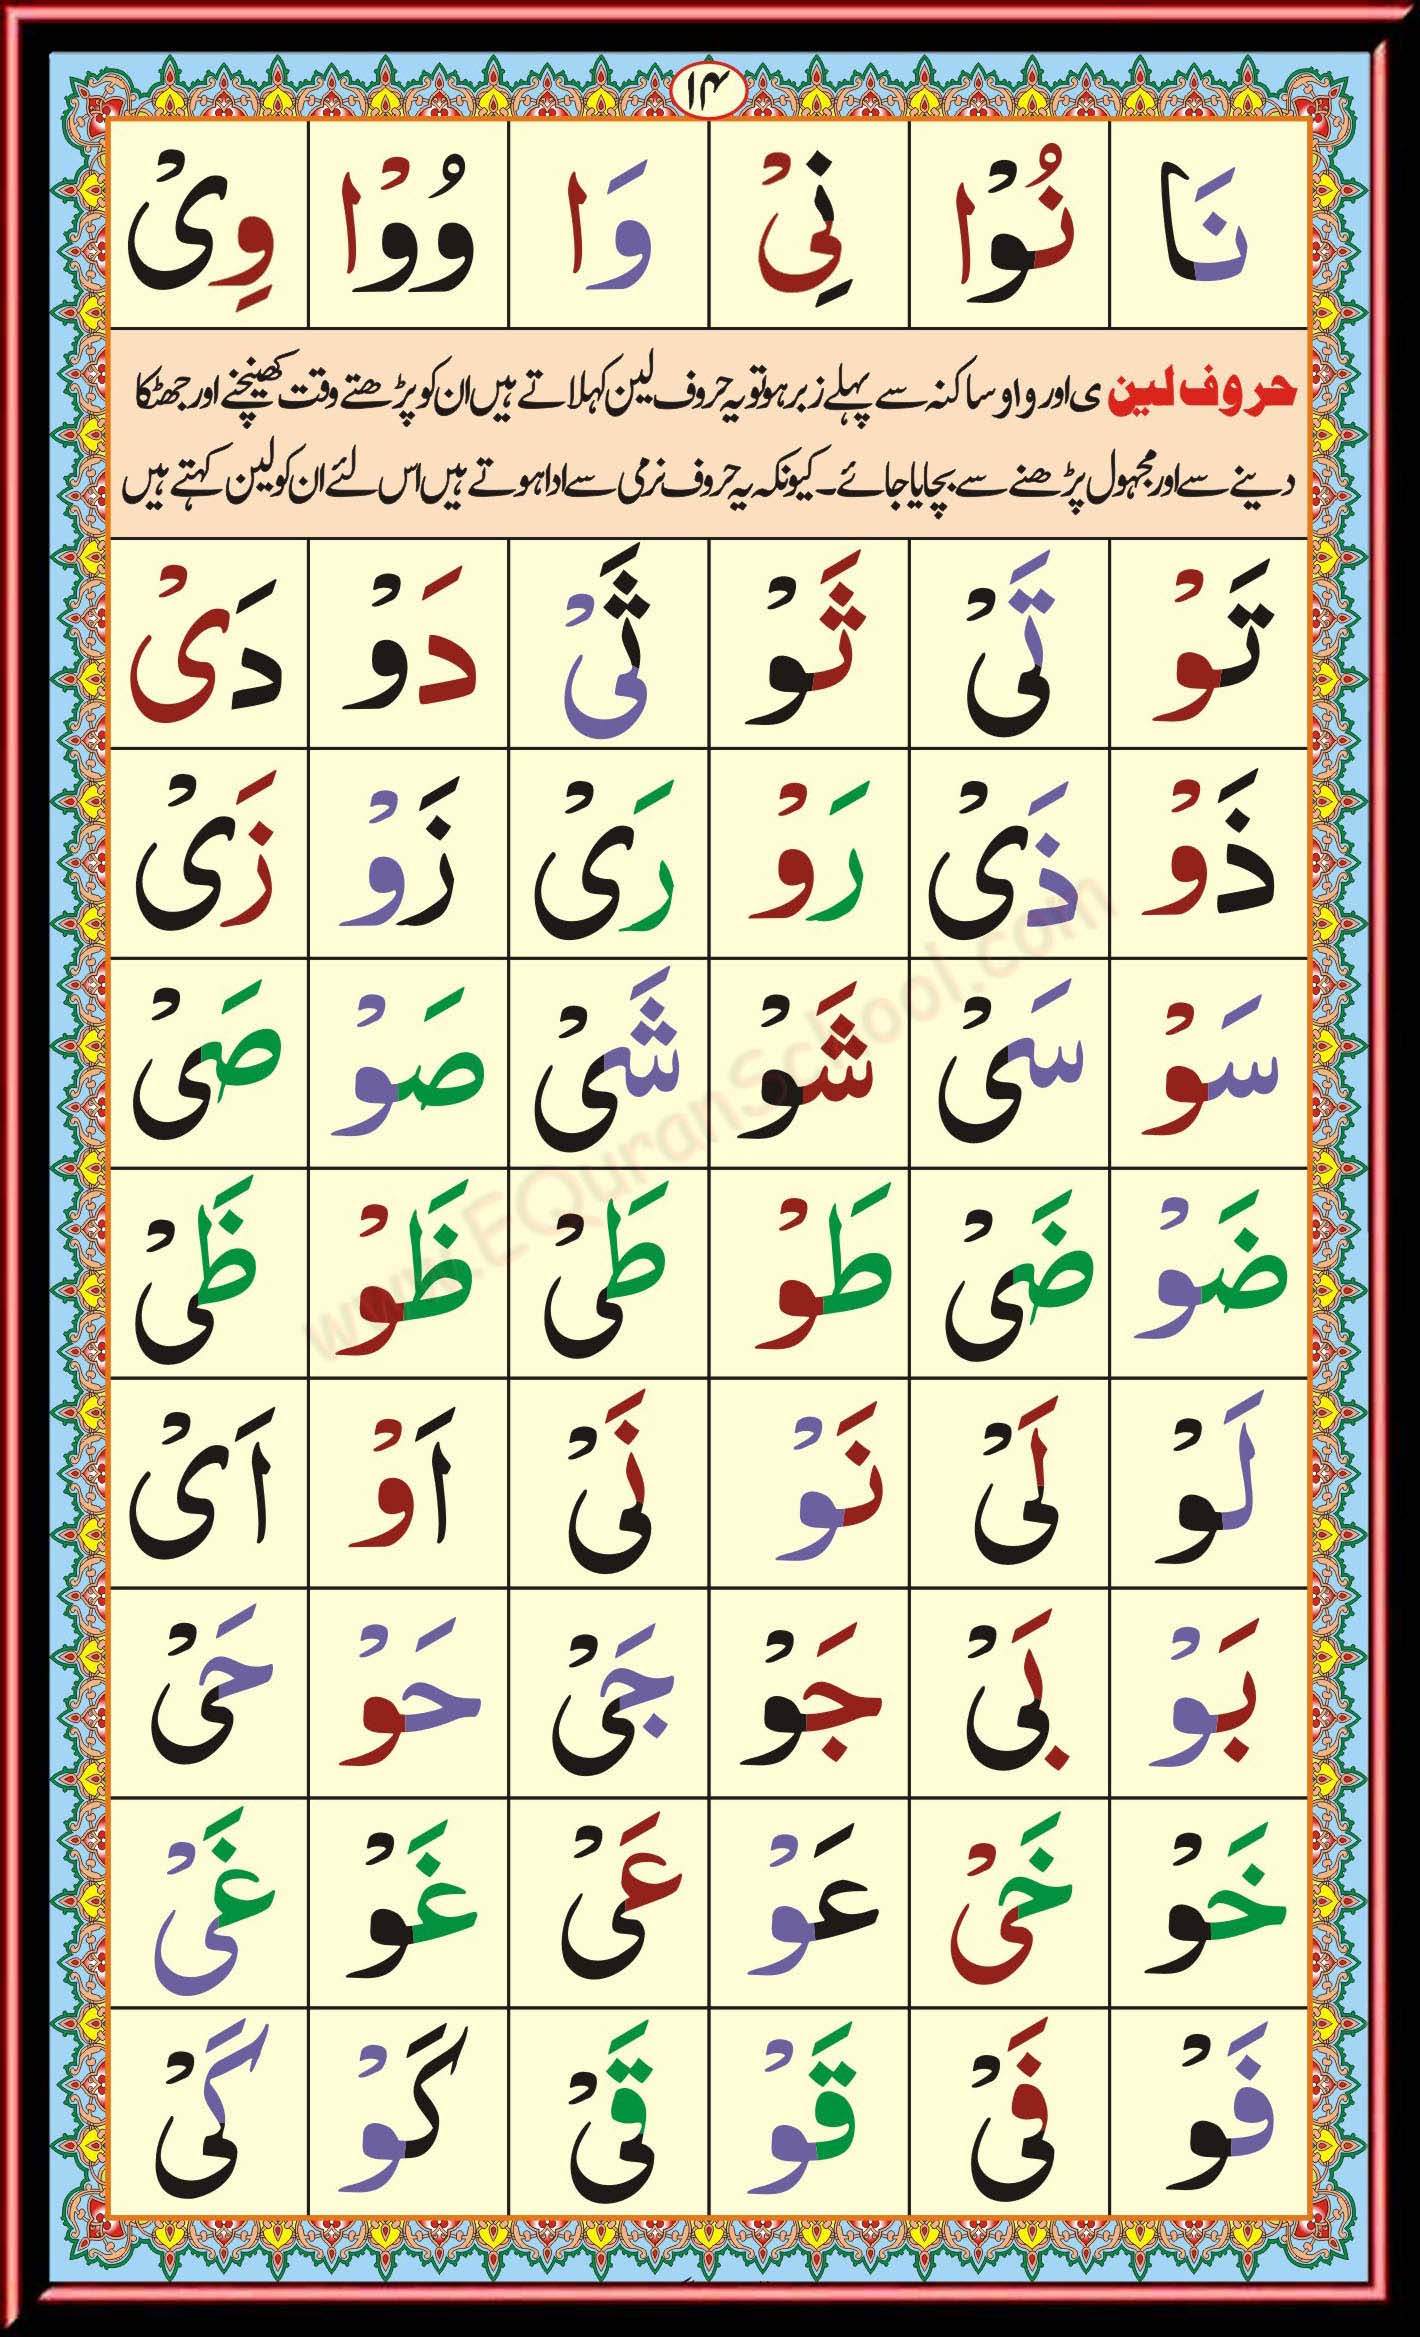 ۱۴
نَا نُوْا نِیْ وَا وُوْا وِیْ
حروف لین ی اور و او ساکنہ سے پہلے زبر ہو تو یہ حروف لین کہلاتے ہیں ان کو پڑھتے وقت کھینچنے اور جھٹکا
دینے سے اور مجہول پڑھنے سے بچایا جائے۔ کیونکہ یہ حروف نرمی سے ادا ہوتے ہیں اس لئے ان کو لین کہتے ہیں
تَوْ تَیْ ثَوْ ثَیْ دَوْ دَیْ
ذَوْ ذَیْ رَوْ رَیْ زَوْ زَیْ
سَوْ سَیْ شَوْ شَیْ صَوْ صَیْ
ضَوْ ضَیْ طَوْ طَیْ ظَوْ ظَیْ
لَوْ لَیْ نَوْ نَیْ اَوْ اَیْ
بَوْ بَیْ جَوْ جَیْ حَوْ حَیْ
خَوْ خَیْ عَوْ عَیْ غَوْ غَیْ
فَوْ فَیْ قَوْ قَیْ كَوْ كَیْ
www.EQuranSchool.com